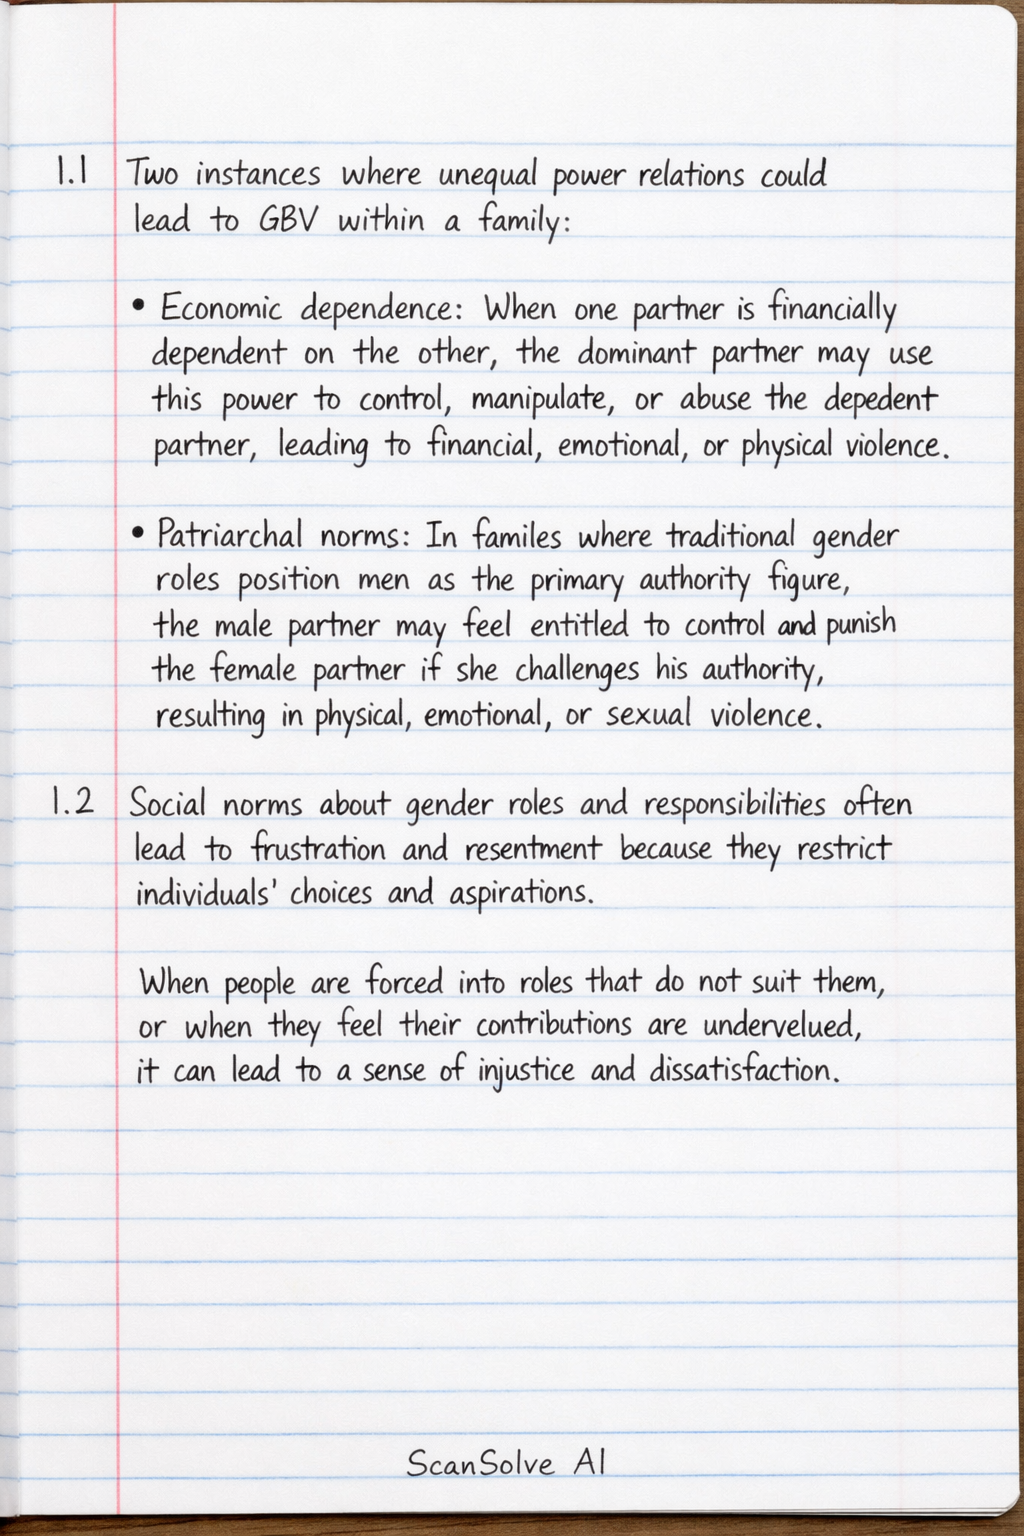 1.1 Two instances where unequal power relations could
lead to GBV within a family:
• Economic dependence: When one partner is financially
dependent on the other, the dominant partner may use
this power to control, manipulate, or abuse the depedent
partner, leading to financial, emotional, or physical violence.
• Patriarchal norms: In familes where traditional gender
roles position men as the primary authority figure,
the male partner may feel entitled to control and punish
the female partner if she challenges his authority,
resulting in physical, emotional, or sexual violence.
1.2 Social norms about gender roles and responsibilities often
lead to frustration and resentment because they restrict
individuals' choices and aspirations.
When people are forced into roles that do not suit them,
or when they feel their contributions are undervelued,
it can lead to a sense of injustice and dissatisfaction.
ScanSolve AI